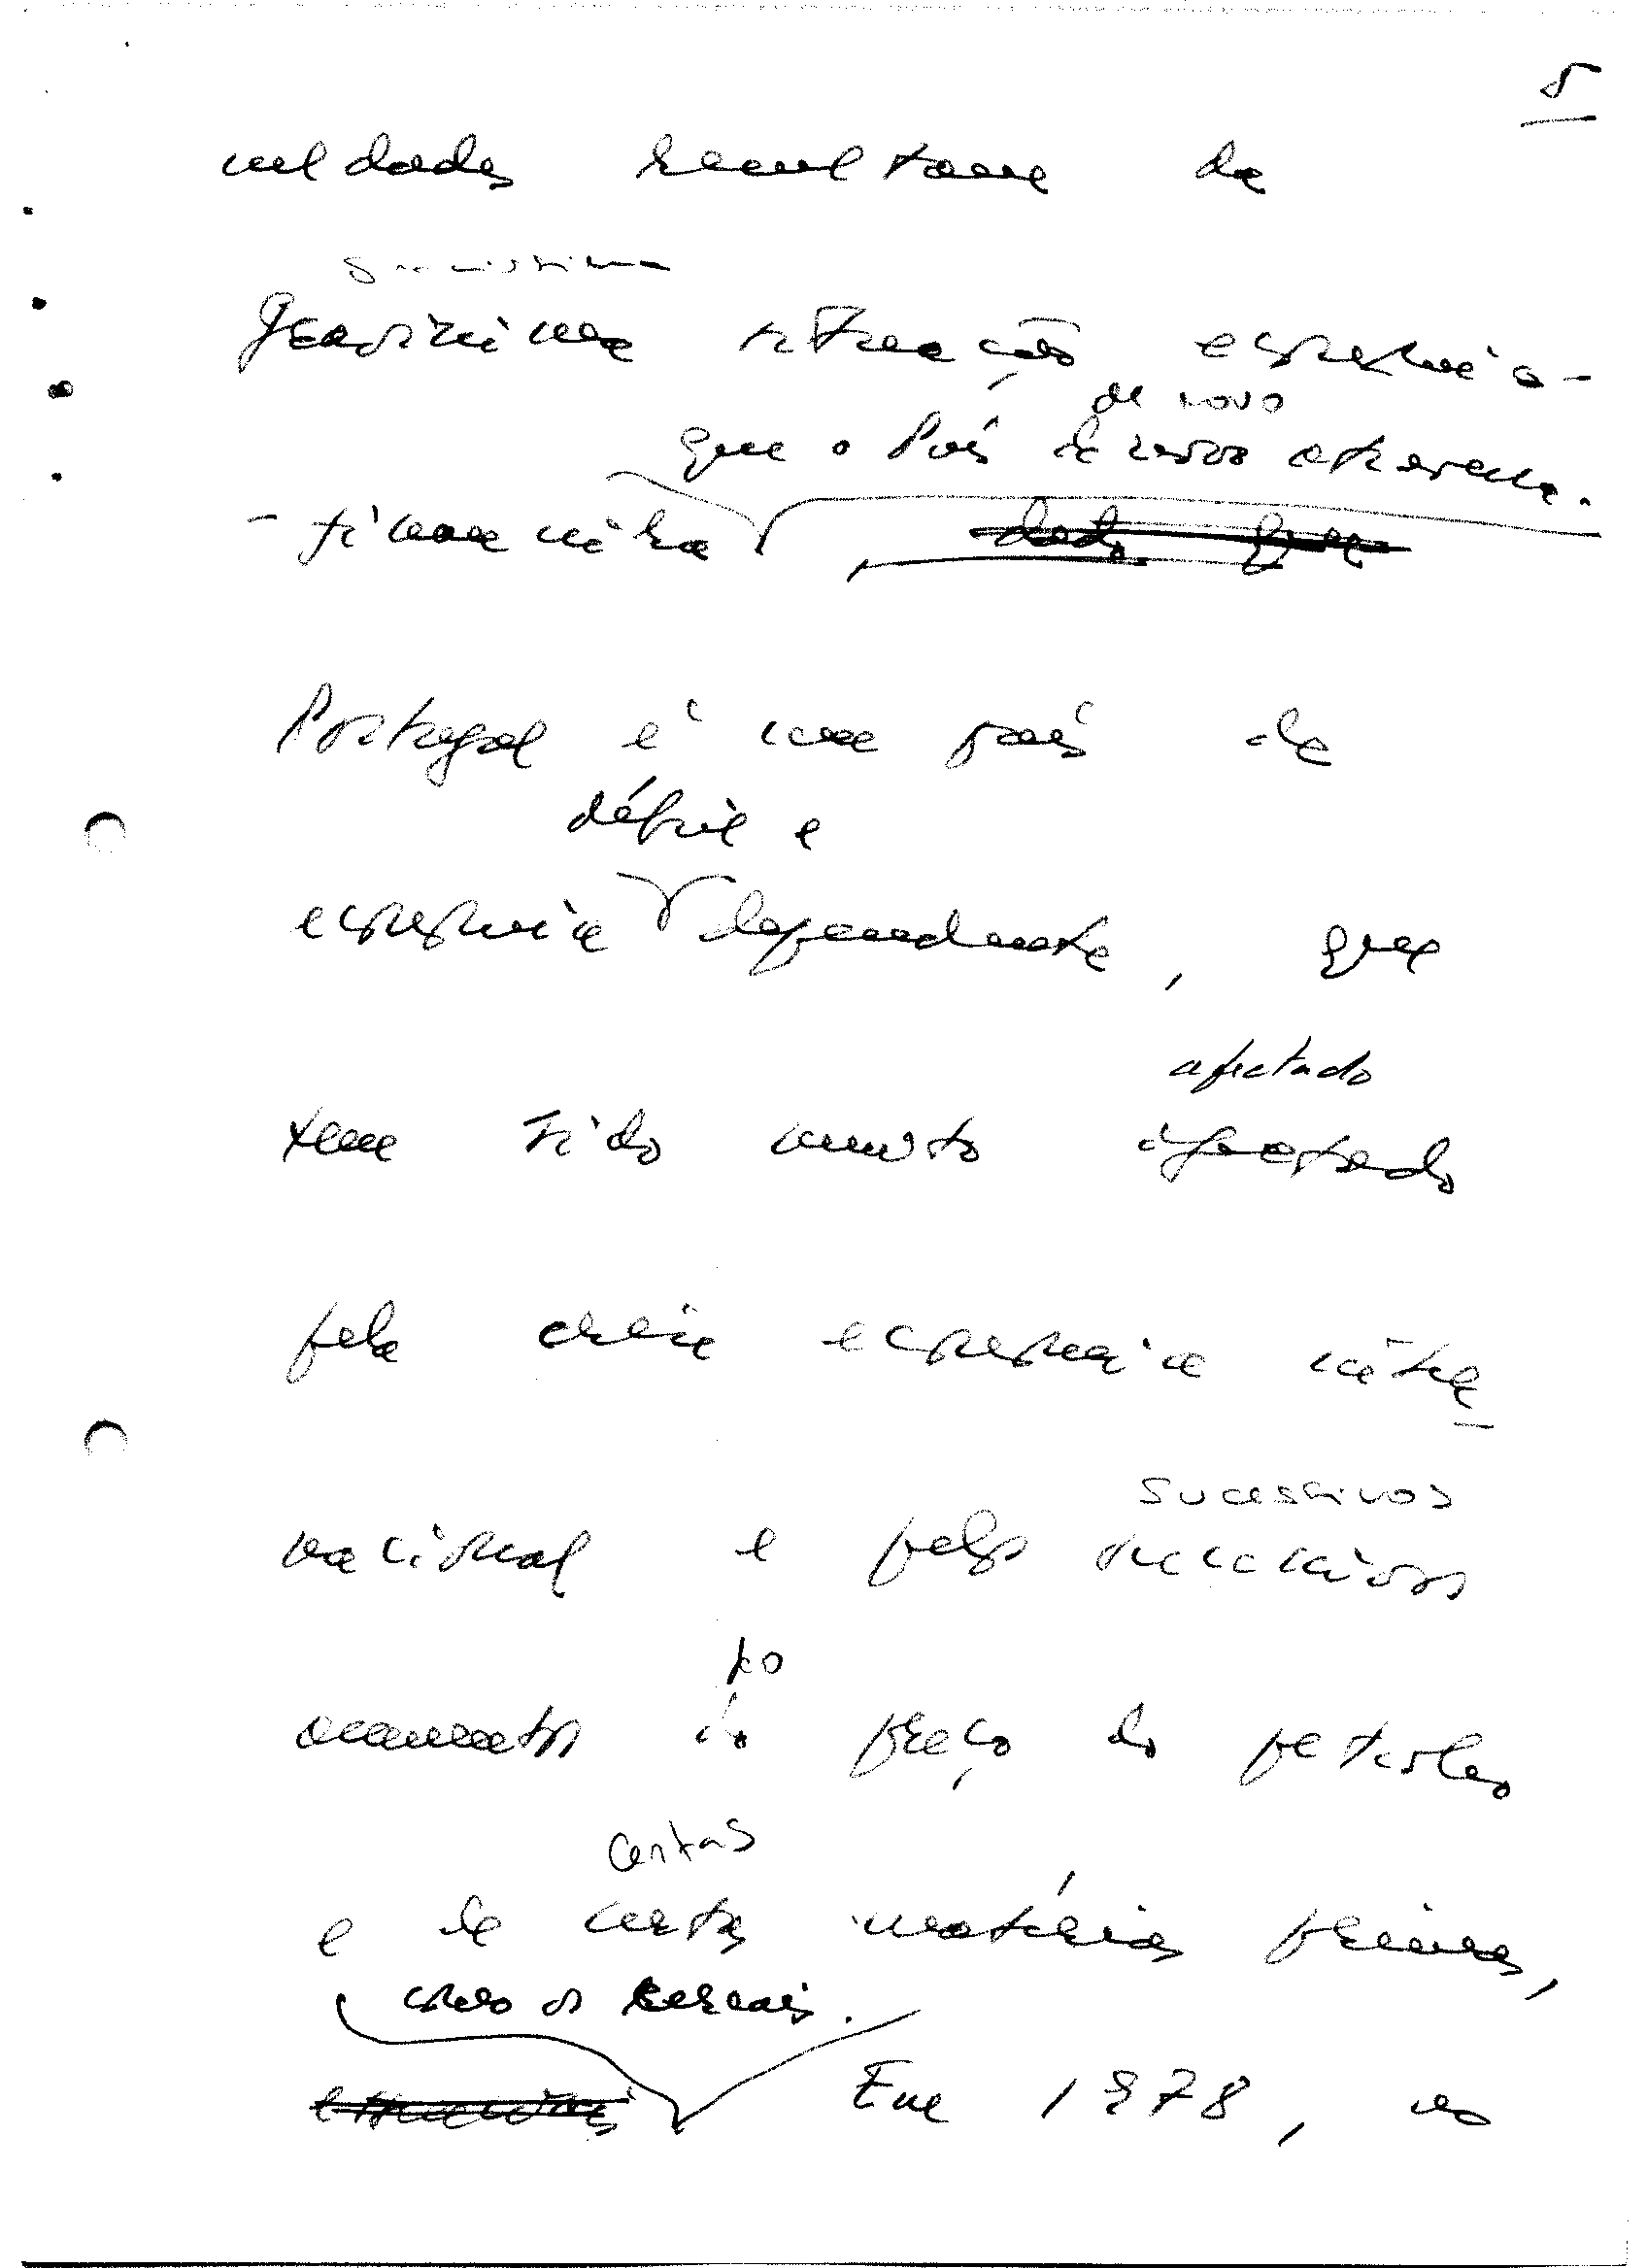 5
culdades resultam da
gravissima
gravissima situação económico-
de novo
que o País de novo atravessa.
- financeira, dado que
Portugal é um país de
débil e
economia dependente, que
afectado
tem sido muito afectado
pela crise económica inter-
sucessivos
nacional e pelos sucessivos
no
aumentos do preço do petróleo
certas
e de certas matérias primas,
como os cereais.
Em 1978, no